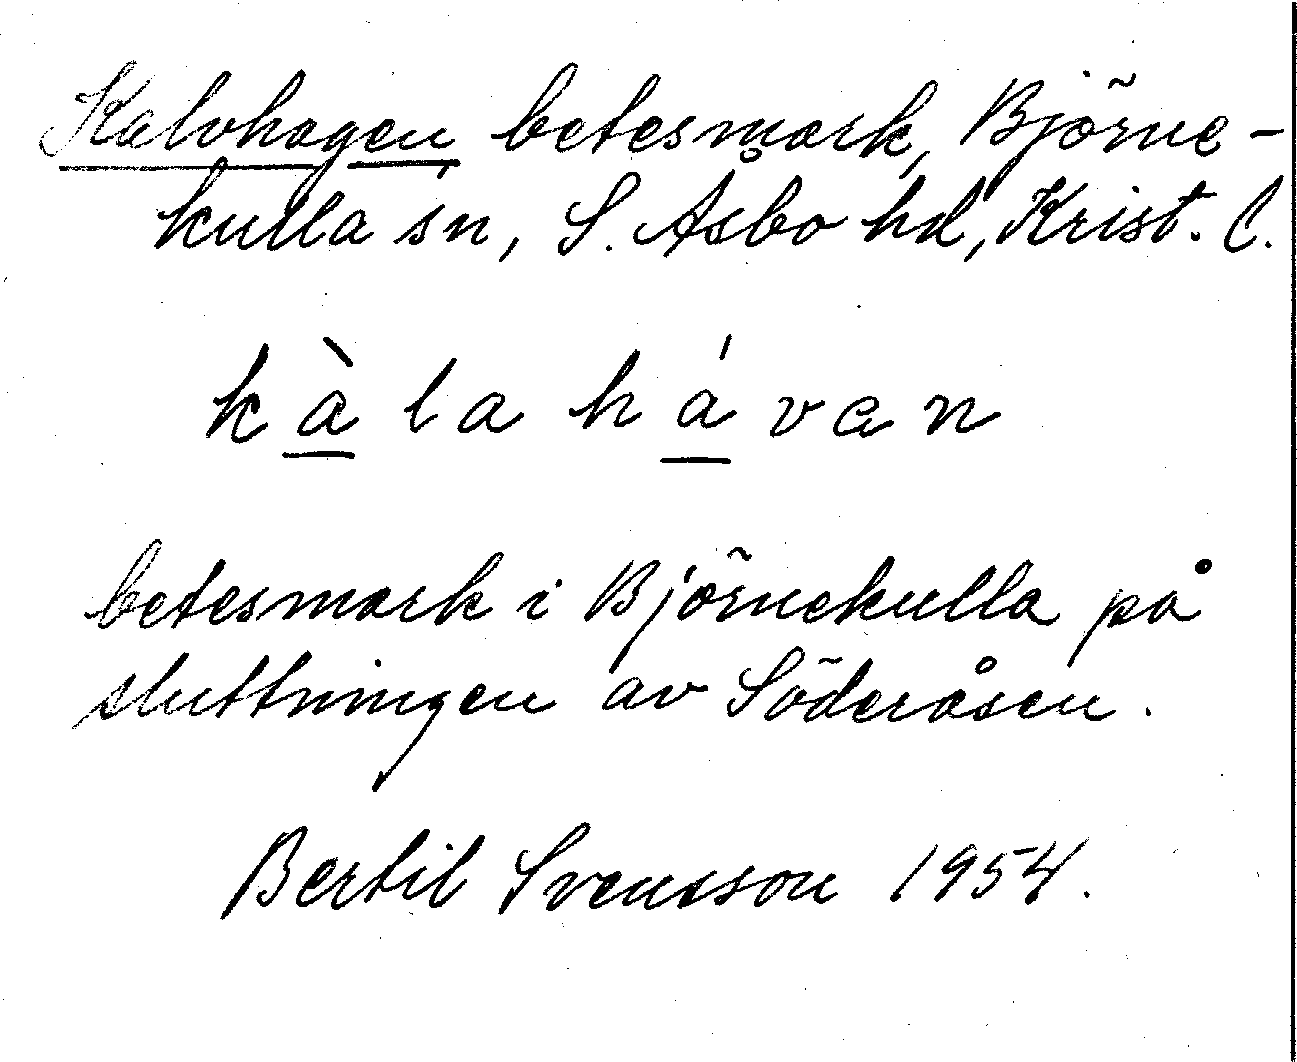 Kalvhagen betesmark, Björne-
kulla sn, S. Åsbo hd, Krist. l.
kàlahávan
betesmark i Björnekulla på
sluttningen av Söderåsen.
Bertil Svensson 1954.